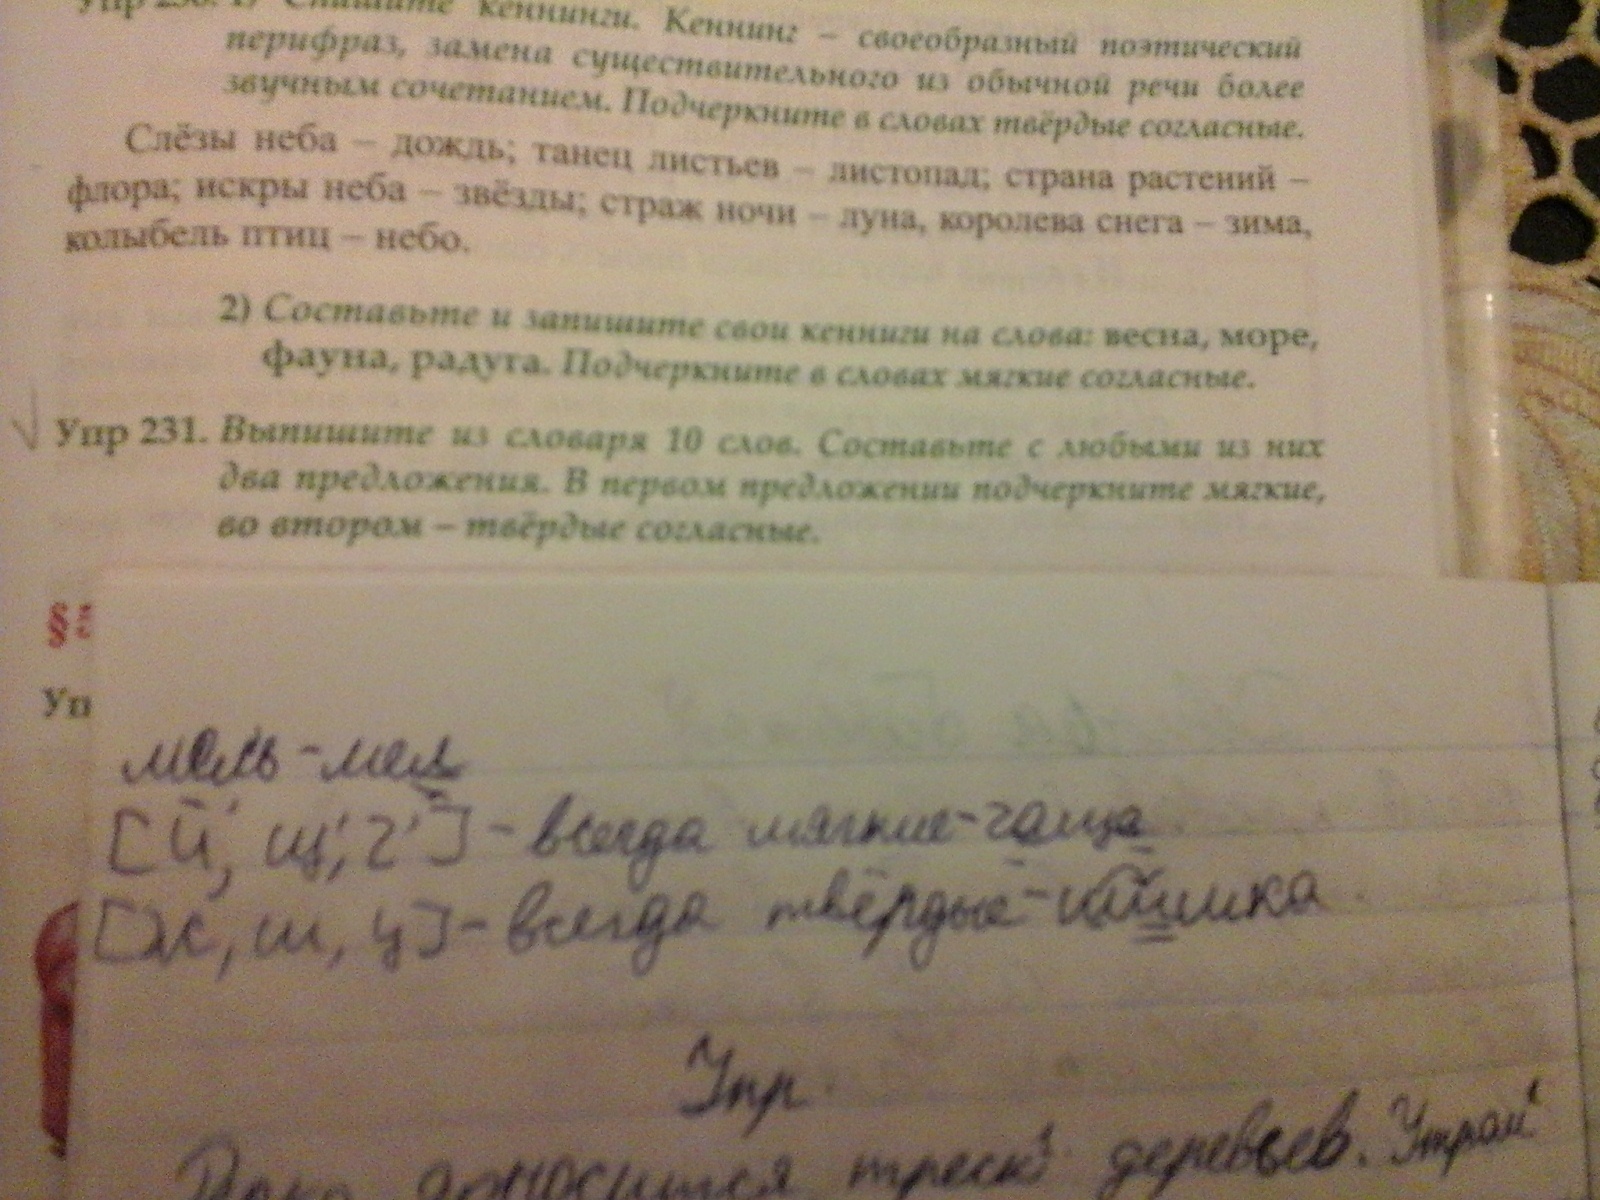 Упр 230. 1) Спишите кеннинги. Кеннинг – своеобразный поэтический
перифраз, замена существительного из обычной речи более
звучным сочетанием. Подчеркните в словах твёрдые согласные.
Слёзы неба – дождь; танец листьев – листопад; страна растений –
флора; искры неба – звёзды; страж ночи – луна, королева снега – зима,
колыбель птиц – небо.
2) Составьте и запишите свои кенниги на слова: весна, море,
фауна, радуга. Подчеркните в словах мягкие согласные.
Упр 231. Выпишите из словаря 10 слов. Составьте с любыми из них
два предложения. В первом предложении подчеркните мягкие,
во втором – твёрдые согласные.
§
Уп
мель - мел
[й', щ', ч'] - всегда мягкие - чаща
[ж, ш, ц] - всегда твёрдые -
Упр.
доносится треск деревьев. Утром